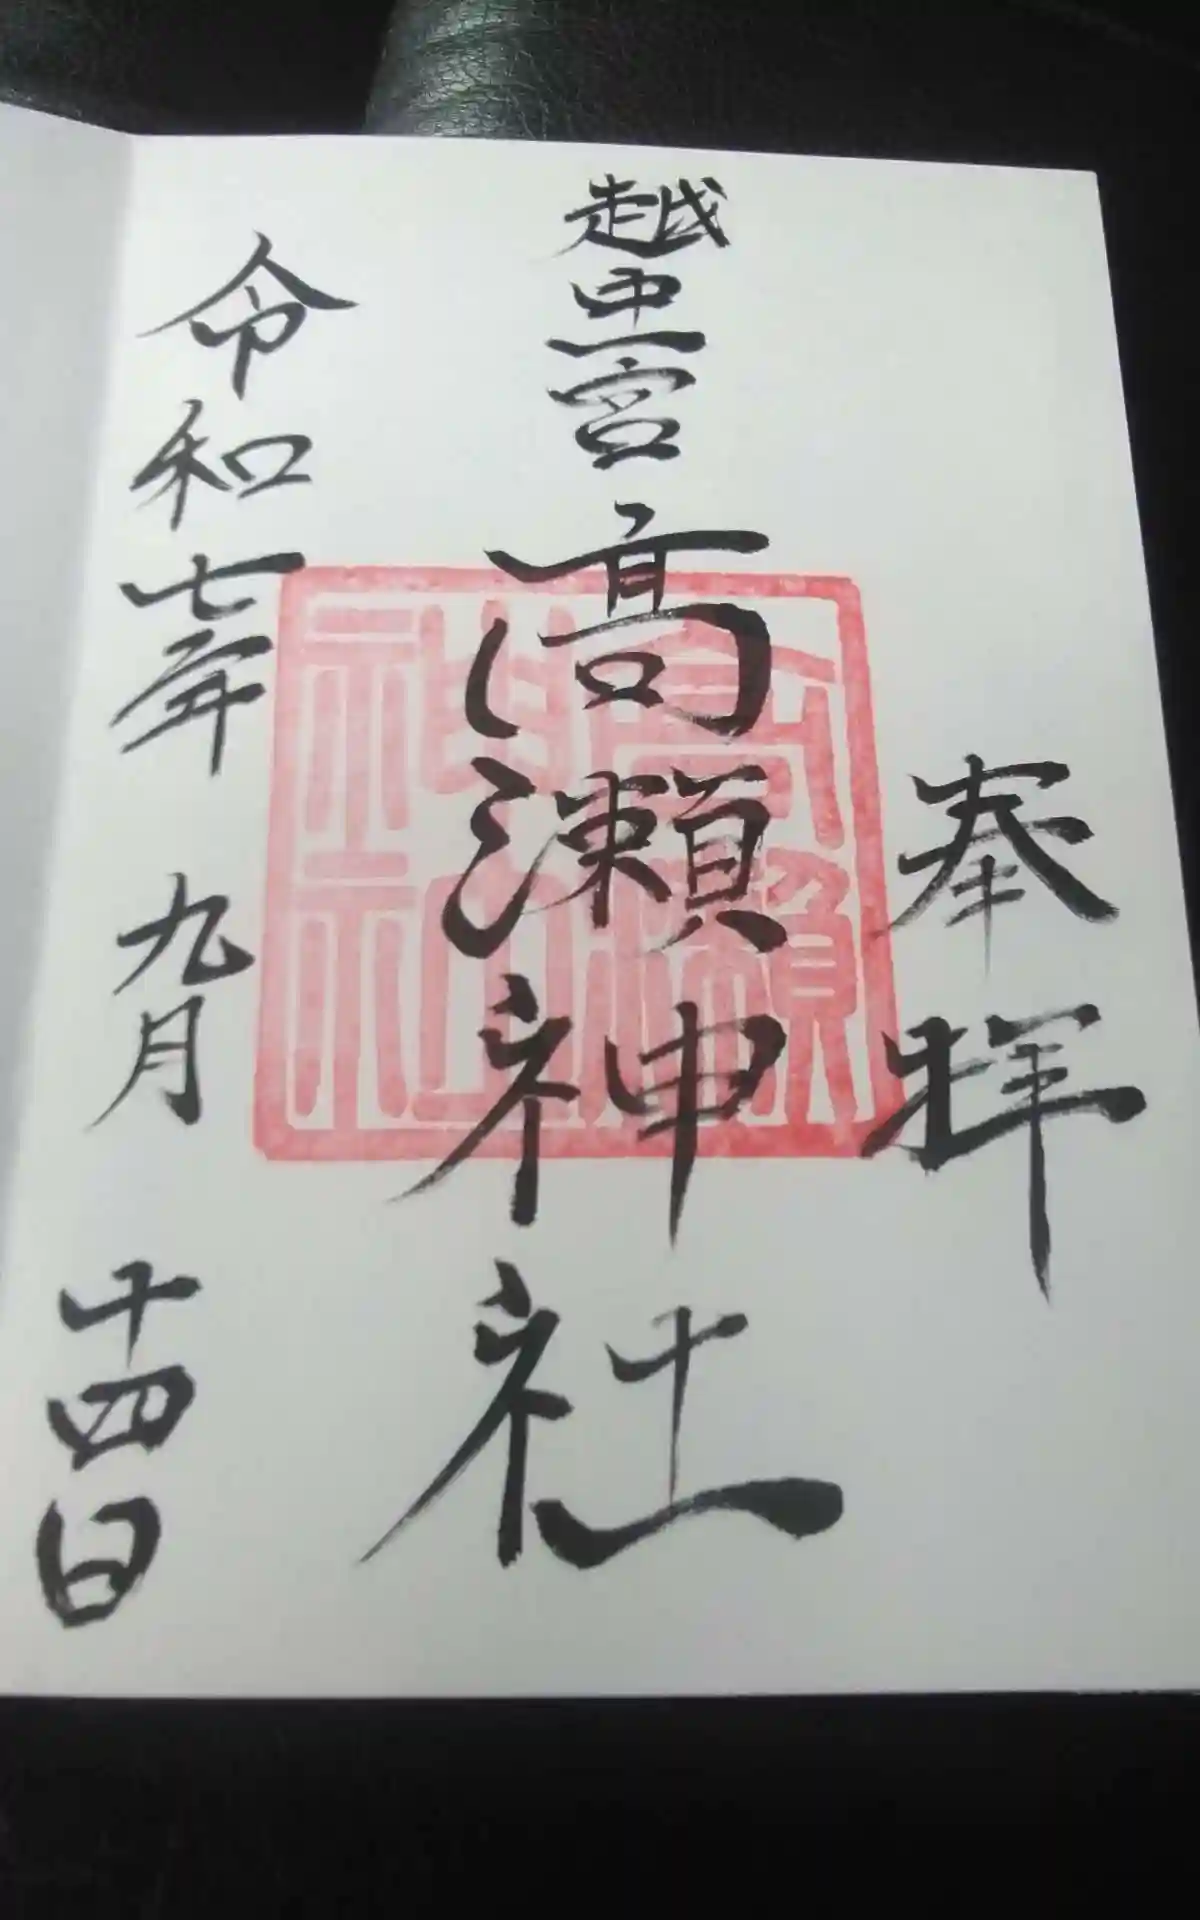 奉拝
越中一宮 高瀬神社
高瀬神社
令和七年 九月 十四日